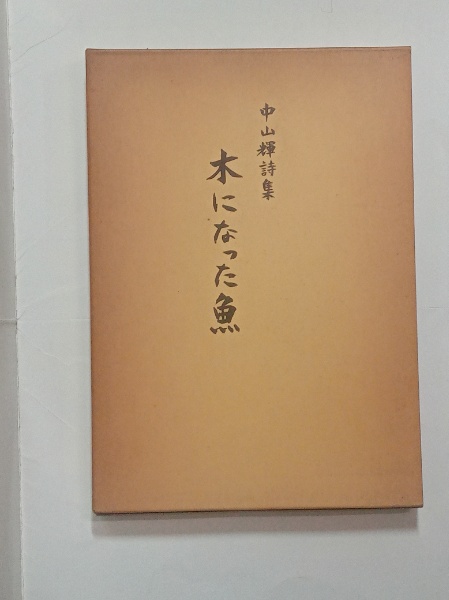 中山輝詩集
木になった魚